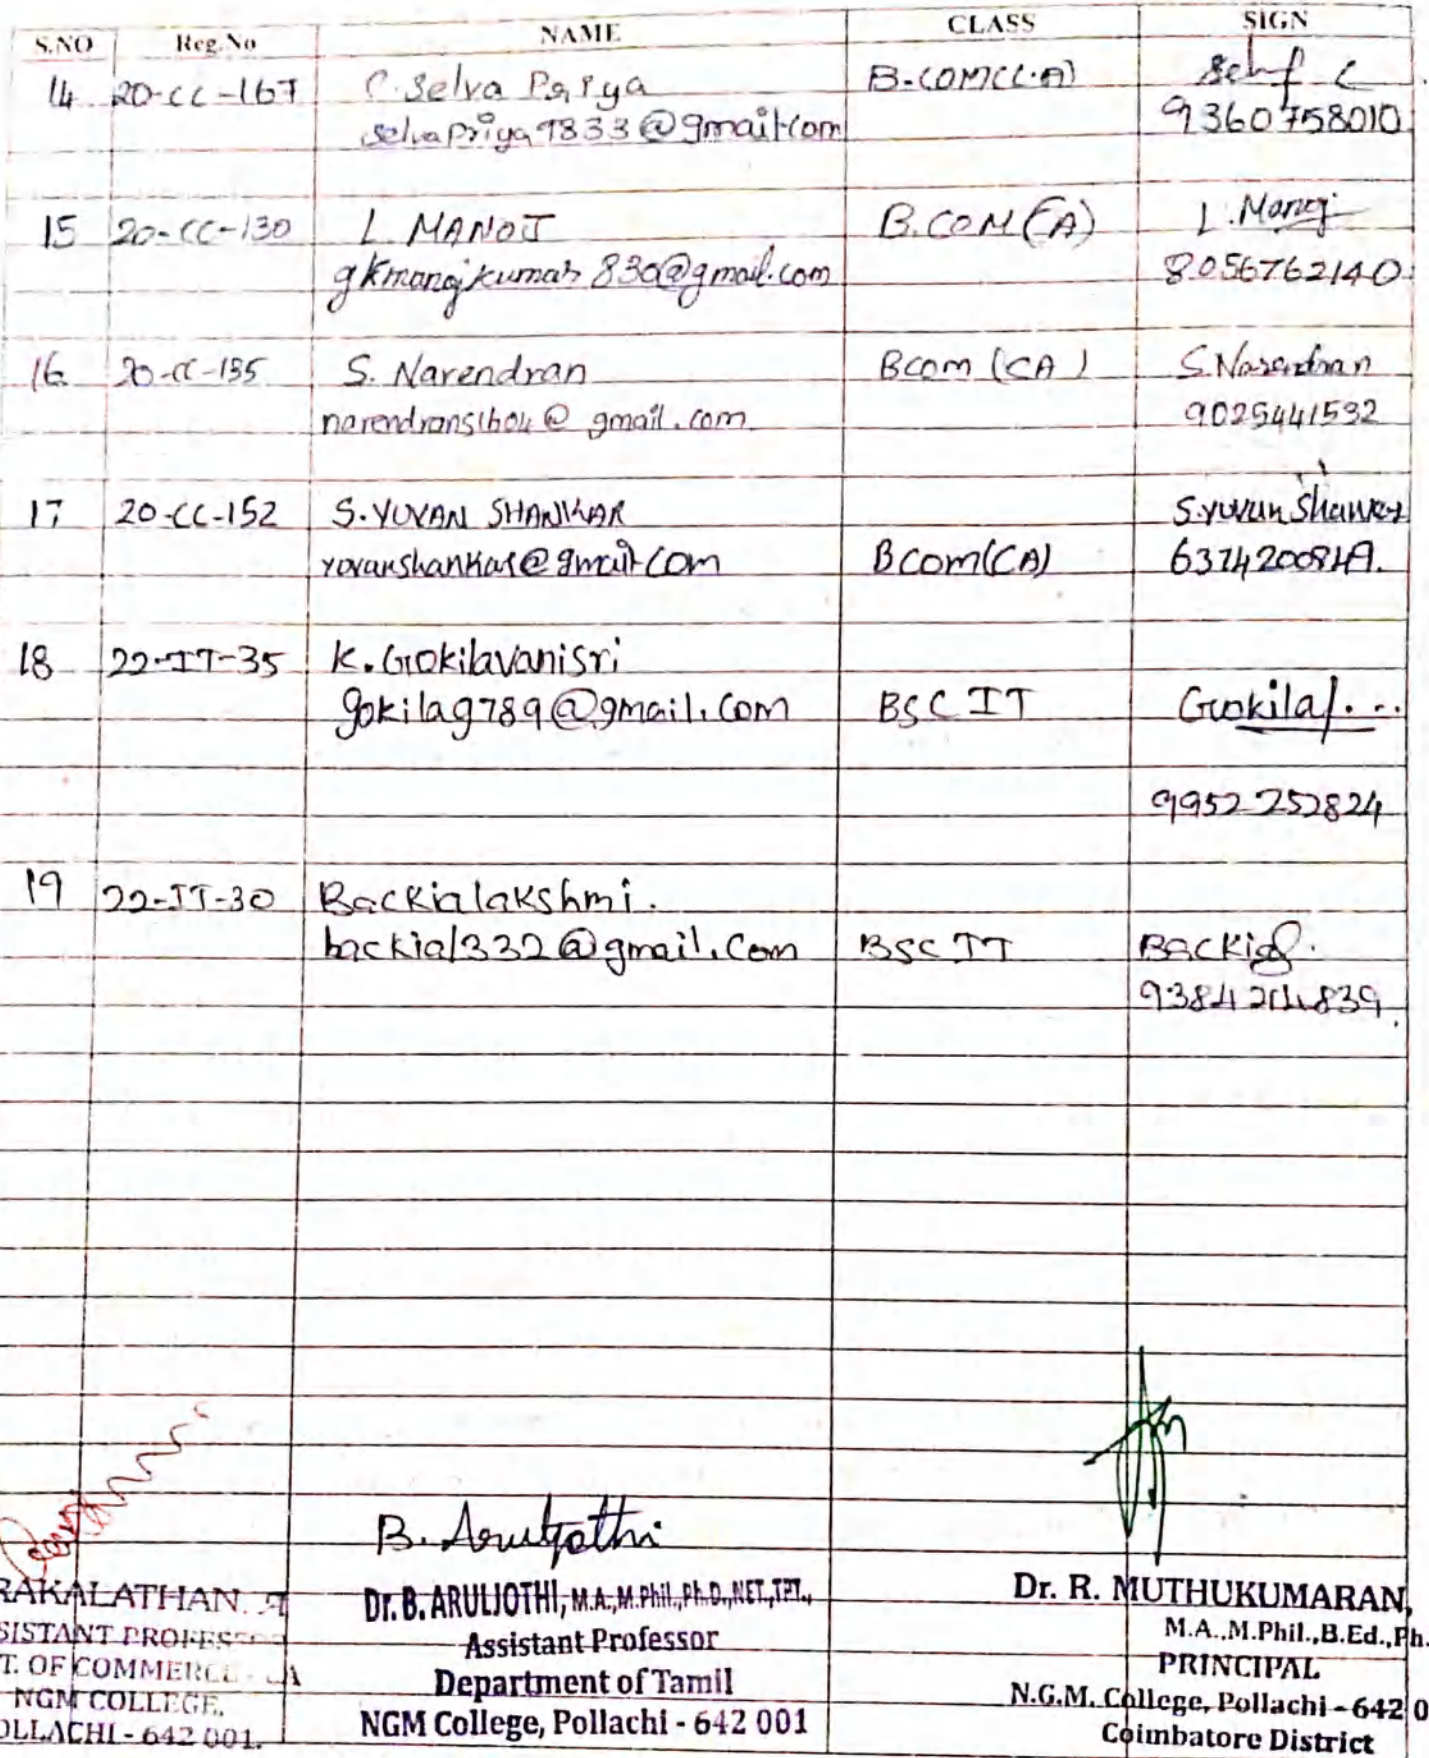 S.NO Reg.No NAME CLASS SIGN
14 20-CC-167 C. Selva Priya B.COM(C.A)
selvapriya7833@gmail.com 9360758010
15 20-CC-130 L. MANOJ B.COM(CA) L. Manoj
gkmanojkumar830@gmail.com 8056762140
16 20-CC-135 S. Narendran Bcom (CA) S. Narendran
narendrans1604@gmail.com 9025441532
17 20-CC-152 S. YUVAN SHANKAR S. Yuvan Shankar
yuvanshankar@gmail.com BCom(CA)
18 22-IT-35 K. Gokilavanisri
gokilag789@gmail.com BSC IT Gokila
9952252824
19 22-IT-30 Backialakshmi.
backial332@gmail.com BSC IT Backia
B. Aruljothi
RAKALATHAN. A
SISTANT PROFESSOR
T. OF COMMERCE CA
NGM COLLEGE,
OLLACHI - 642 001.
Dr. B. ARULJOTHI, M.A., M.Phil., Ph.D., NET., TPT.,
Assistant Professor
Department of Tamil
NGM College, Pollachi - 642 001
Dr. R. MUTHUKUMARAN,
M.A.,M.Phil.,B.Ed.,Ph.
PRINCIPAL
N.G.M. College, Pollachi - 642 0
Coimbatore District